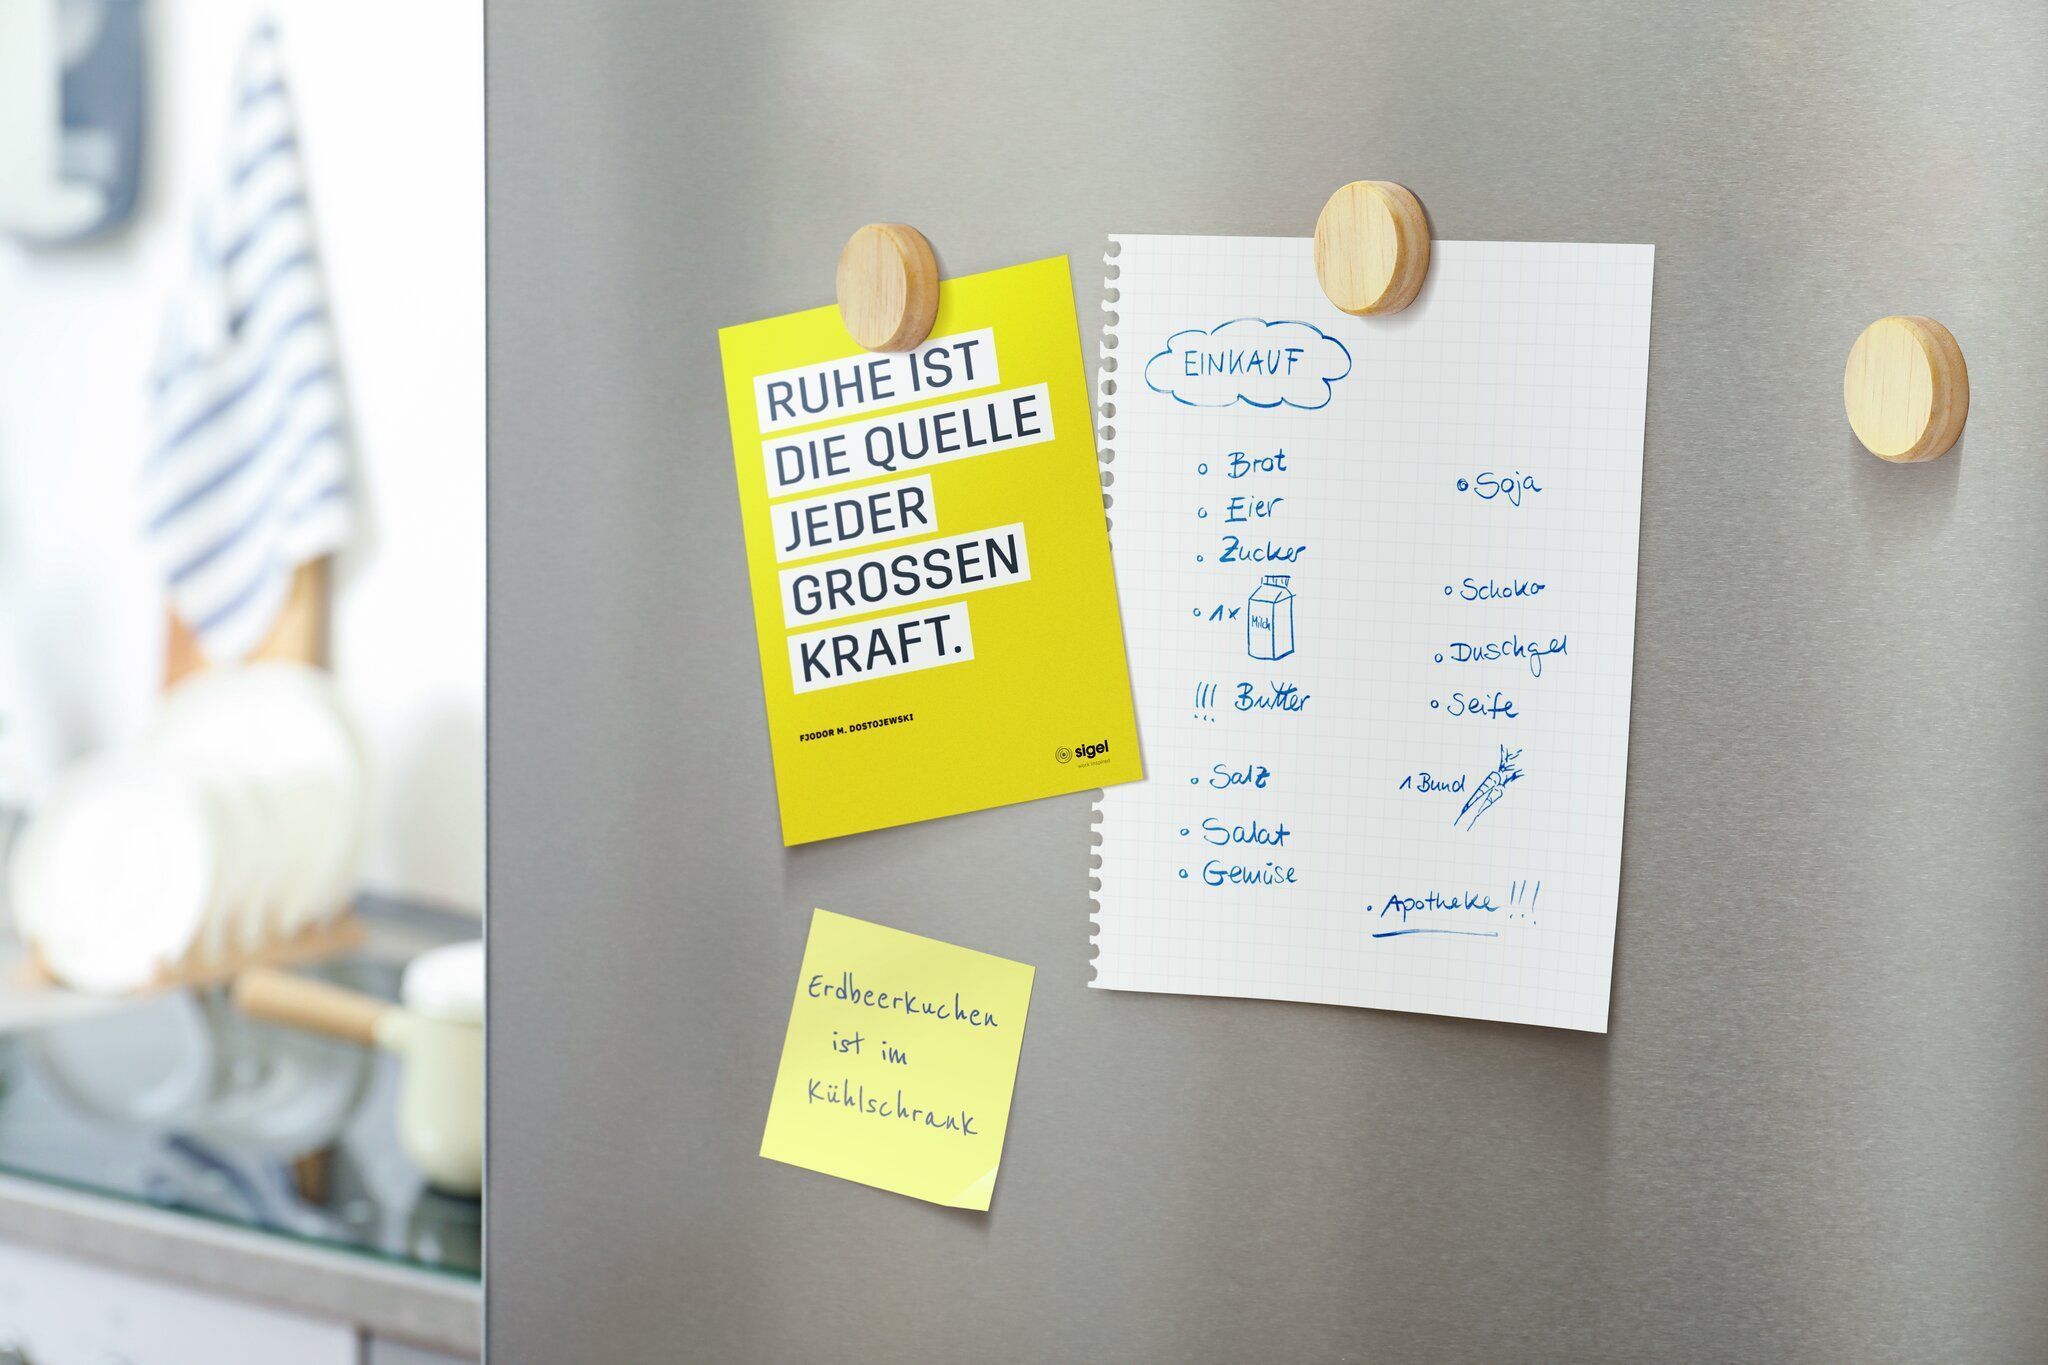 RUHE IST
DIE QUELLE
JEDER
GROSSEN
KRAFT.
FJODOR M. DOSTOJEWSKI
sigel
work inspired
EINKAUF
Brot
Eier
Zucker
1x Milch
!!! Butter
Salz
Salat
Gemüse
Soja
Schoko
Duschgel
Seife
1 Bund
Apotheke !!!
Erdbeerkuchen
ist im
Kühlschrank